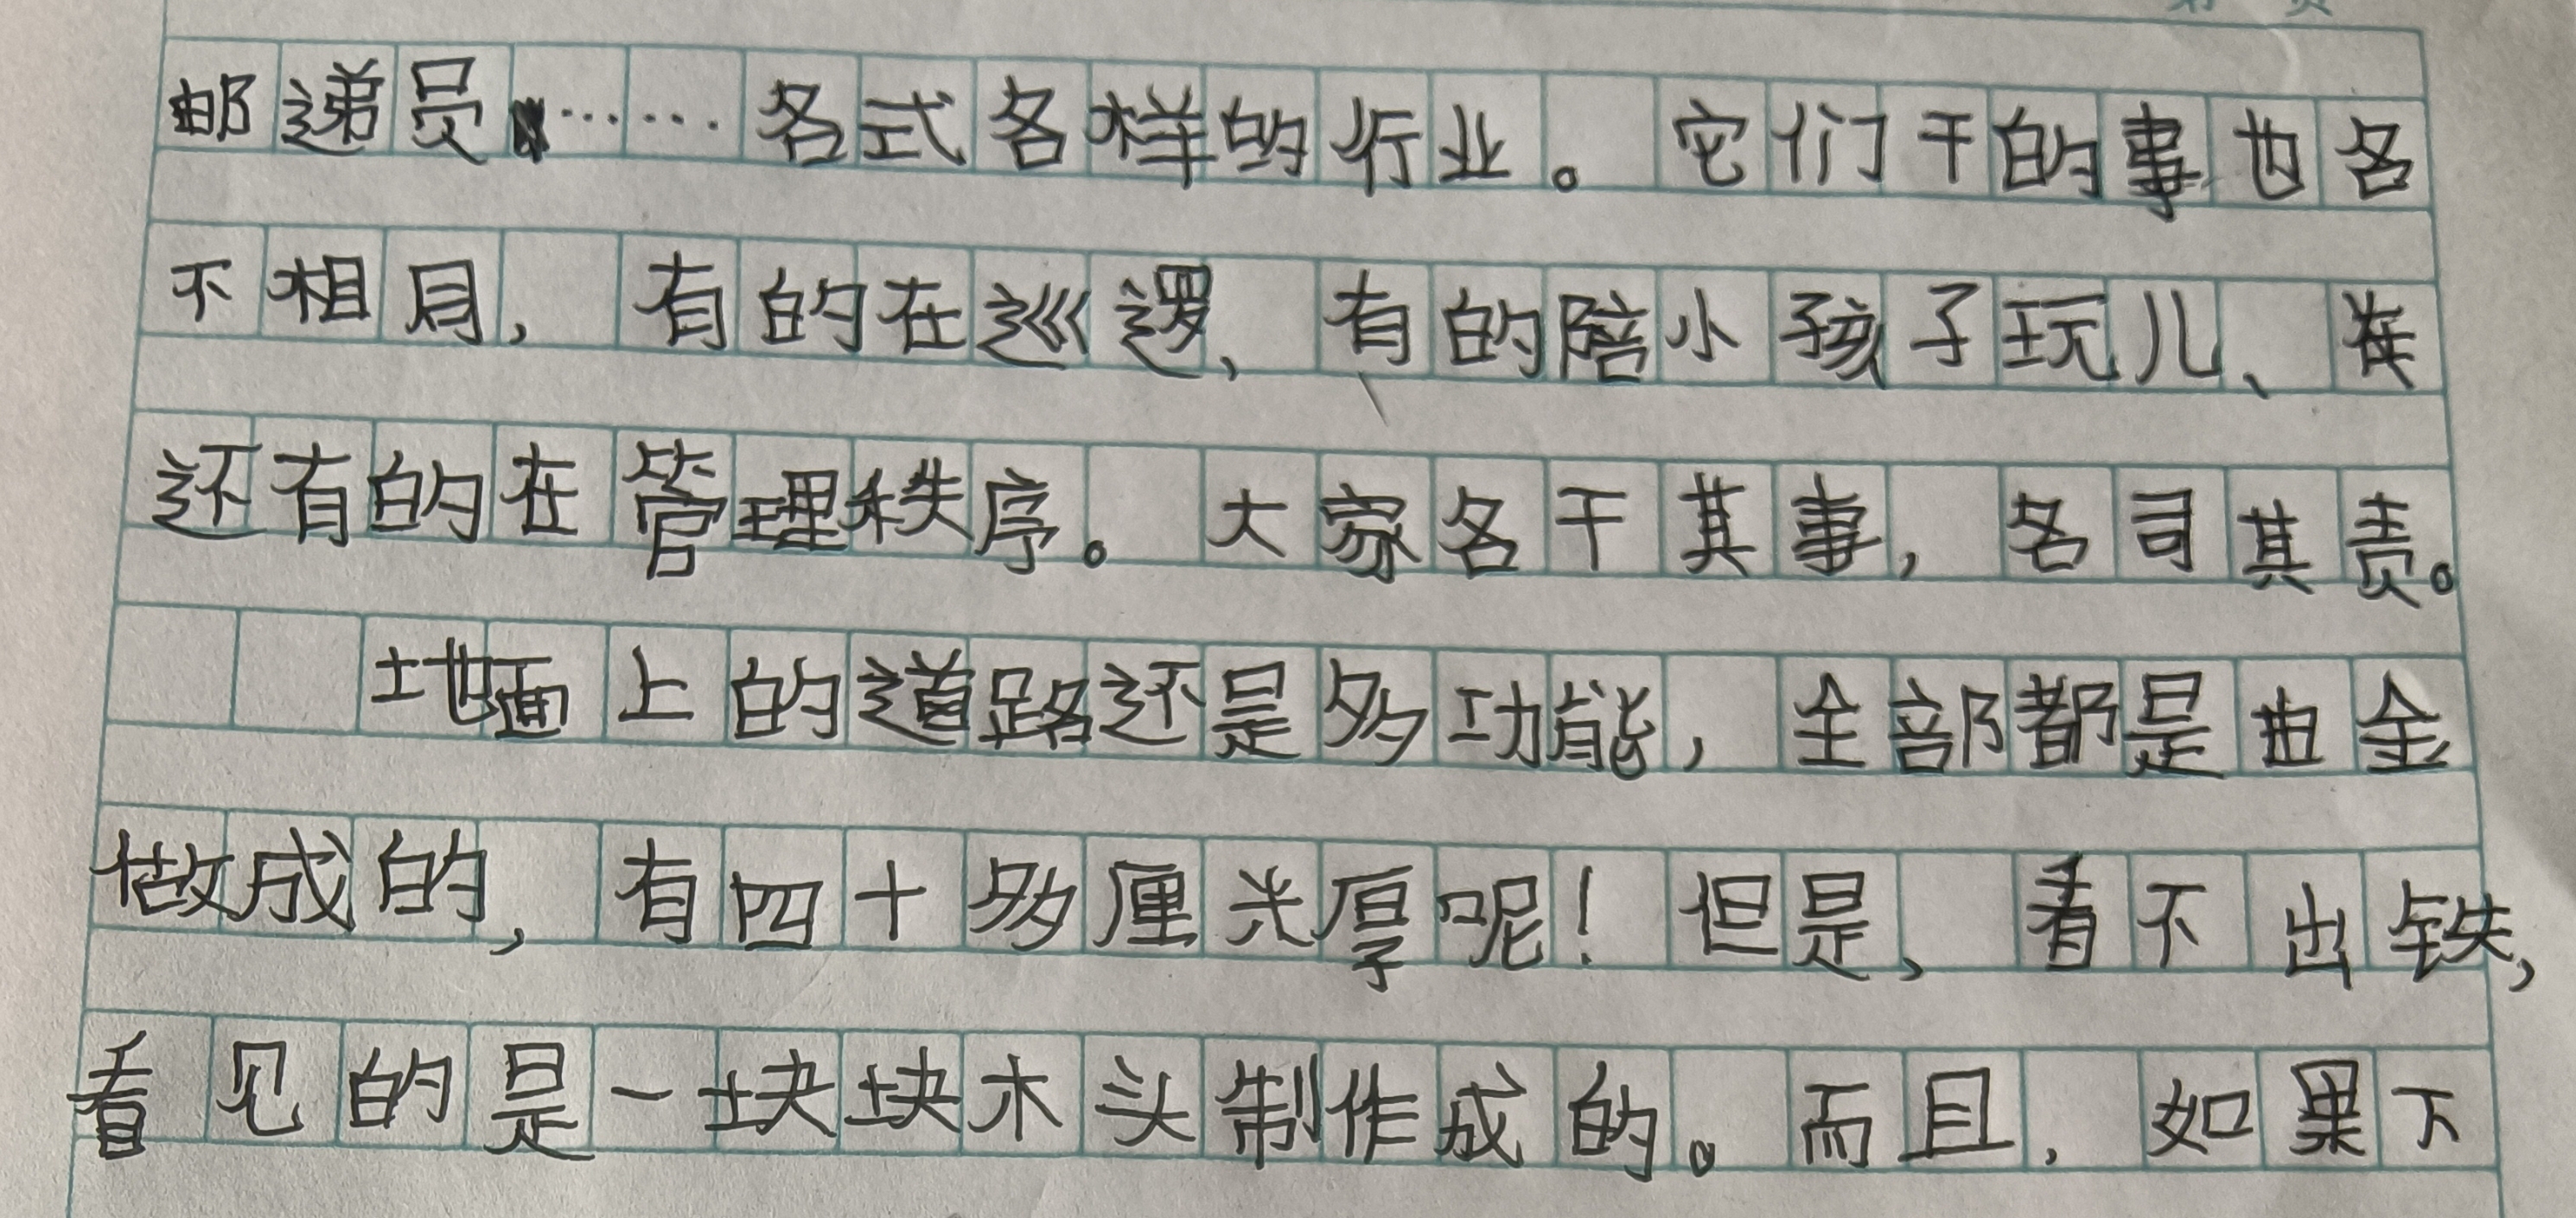 邮递员……各式各样的行业。它们干的事也各
不相同，有的在巡逻，有的陪小孩子玩儿、
还有的在管理秩序。大家各干其事，各司其责。
地面上的道路还是多功能，全部都是由金
做成的，有四十多厘米厚呢！但是，看不出铁，
看见的是一块块木头制作成的。而且，如果下